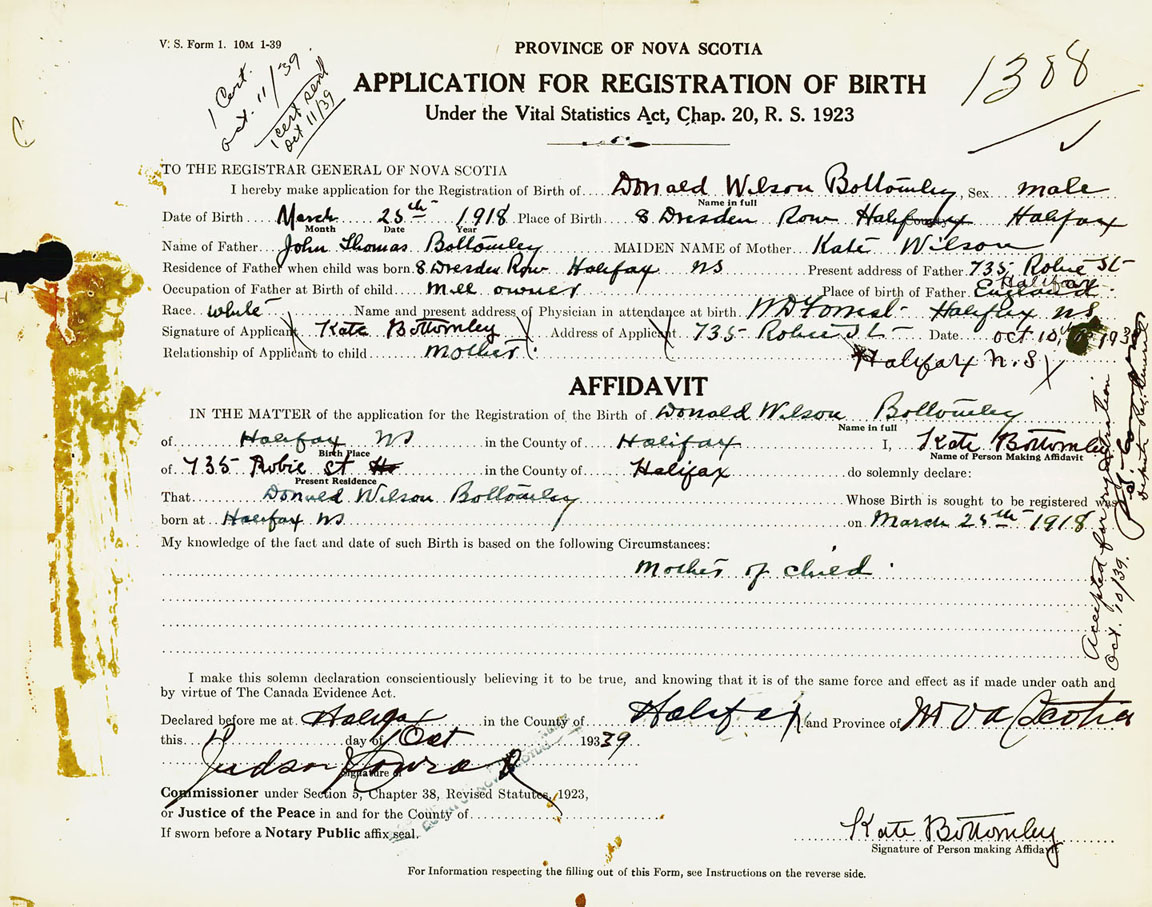 V. S. Form 1. 10M 1-39
PROVINCE OF NOVA SCOTIA
1388
1 Cert.
Oct. 11/39
1 cert send
Oct 11/39
APPLICATION FOR REGISTRATION OF BIRTH
Under the Vital Statistics Act, Chap. 20, R. S. 1923
TO THE REGISTRAR GENERAL OF NOVA SCOTIA
I hereby make application for the Registration of Birth of Donald Wilson Bottomley, Sex male
Name in full
Date of Birth March 25th 1918 Place of Birth 8 Dresden Row Halifax Halifax
Month Date Year County
Name of Father John Thomas Bottomley MAIDEN NAME of Mother Kate Wilson
Residence of Father when child was born 8 Dresden Row Halifax NS Present address of Father 735 Robie St
Halifax
Occupation of Father at Birth of child Mill owner Place of birth of Father England
Race white Name and present address of Physician in attendance at birth. W D Forrest Halifax NS
Signature of Applicant Kate Bottomley Address of Applicant 735 Robie St Date Oct 10, 193
Relationship of Applicant to child mother Halifax N.S
AFFIDAVIT
IN THE MATTER of the application for the Registration of the Birth of Donald Wilson Bottomley
Name in full
of Halifax NS in the County of Halifax I, Kate Bottomley
Birth Place Name of Person Making Affidavit
of 735 Robie St in the County of Halifax do solemnly declare:
Present Residence
That Donald Wilson Bottomley Whose Birth is sought to be registered was
born at Halifax NS on March 25th 1918
My knowledge of the fact and date of such Birth is based on the following Circumstances:
Mother of child
Accepted for registration
Oct. 10/39.
Deputy Reg. General
I make this solemn declaration conscientiously believing it to be true, and knowing that it is of the same force and effect as if made under oath and
by virtue of The Canada Evidence Act.
Declared before me at Halifax in the County of Halifax and Province of Nova Scotia
this day of Oct 1939
Judson Conrad
Signature of
Commissioner under Section 5, Chapter 38, Revised Statutes, 1923,
or Justice of the Peace in and for the County of
If sworn before a Notary Public affix seal.
Kate Bottomley
Signature of Person making Affidavit
For Information respecting the filling out of this Form, see Instructions on the reverse side.